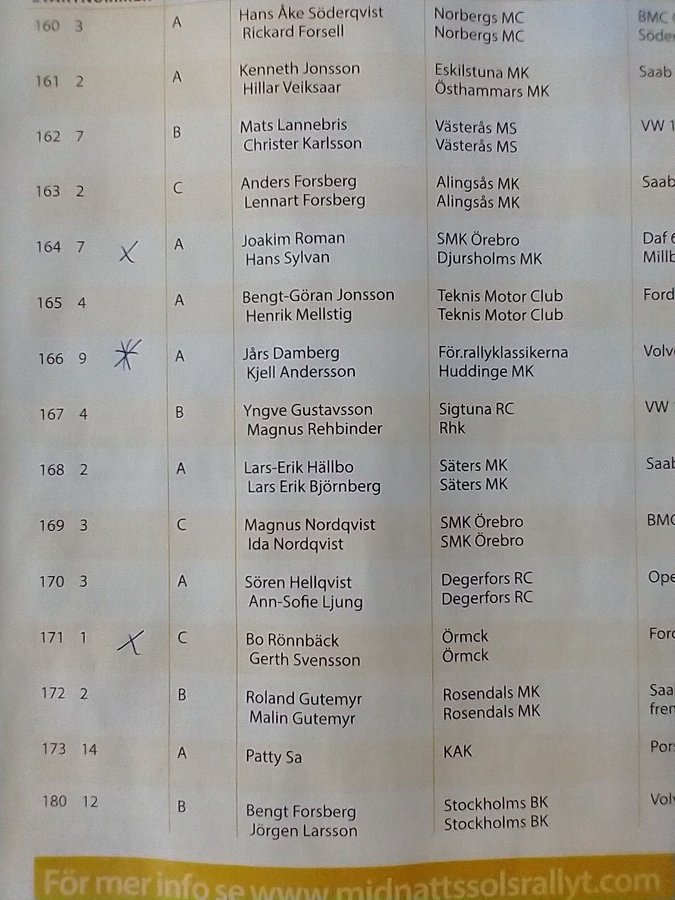 160 3 A Hans Åke Söderqvist Norbergs MC BMC
Rickard Forsell Norbergs MC Söder
161 2 A Kenneth Jonsson Eskilstuna MK Saab
Hillar Veiksaar Östhammars MK
162 7 B Mats Lannebris Västerås MS VW 1
Christer Karlsson Västerås MS
163 2 C Anders Forsberg Alingsås MK Saab
Lennart Forsberg Alingsås MK
164 7 X A Joakim Roman SMK Örebro Daf 6
Hans Sylvan Djursholms MK Millb
165 4 A Bengt-Göran Jonsson Teknis Motor Club Ford
Henrik Mellstig Teknis Motor Club
166 9 A Jårs Damberg För.rallyklassikerna Volv
Kjell Andersson Huddinge MK
167 4 B Yngve Gustavsson Sigtuna RC VW
Magnus Rehbinder Rhk
168 2 A Lars-Erik Hällbo Säters MK Saab
Lars Erik Björnberg Säters MK
169 3 C Magnus Nordqvist SMK Örebro BMC
Ida Nordqvist SMK Örebro
170 3 A Sören Hellqvist Degerfors RC Ope
Ann-Sofie Ljung Degerfors RC
171 1 X C Bo Rönnbäck Örmck Ford
Gerth Svensson Örmck
172 2 B Roland Gutemyr Rosendals MK Saa
Malin Gutemyr Rosendals MK fren
173 14 A Patty Sa KAK Pors
180 12 B Bengt Forsberg Stockholms BK Volv
Jörgen Larsson Stockholms BK
För mer info se www.midnattssolsrallyt.com